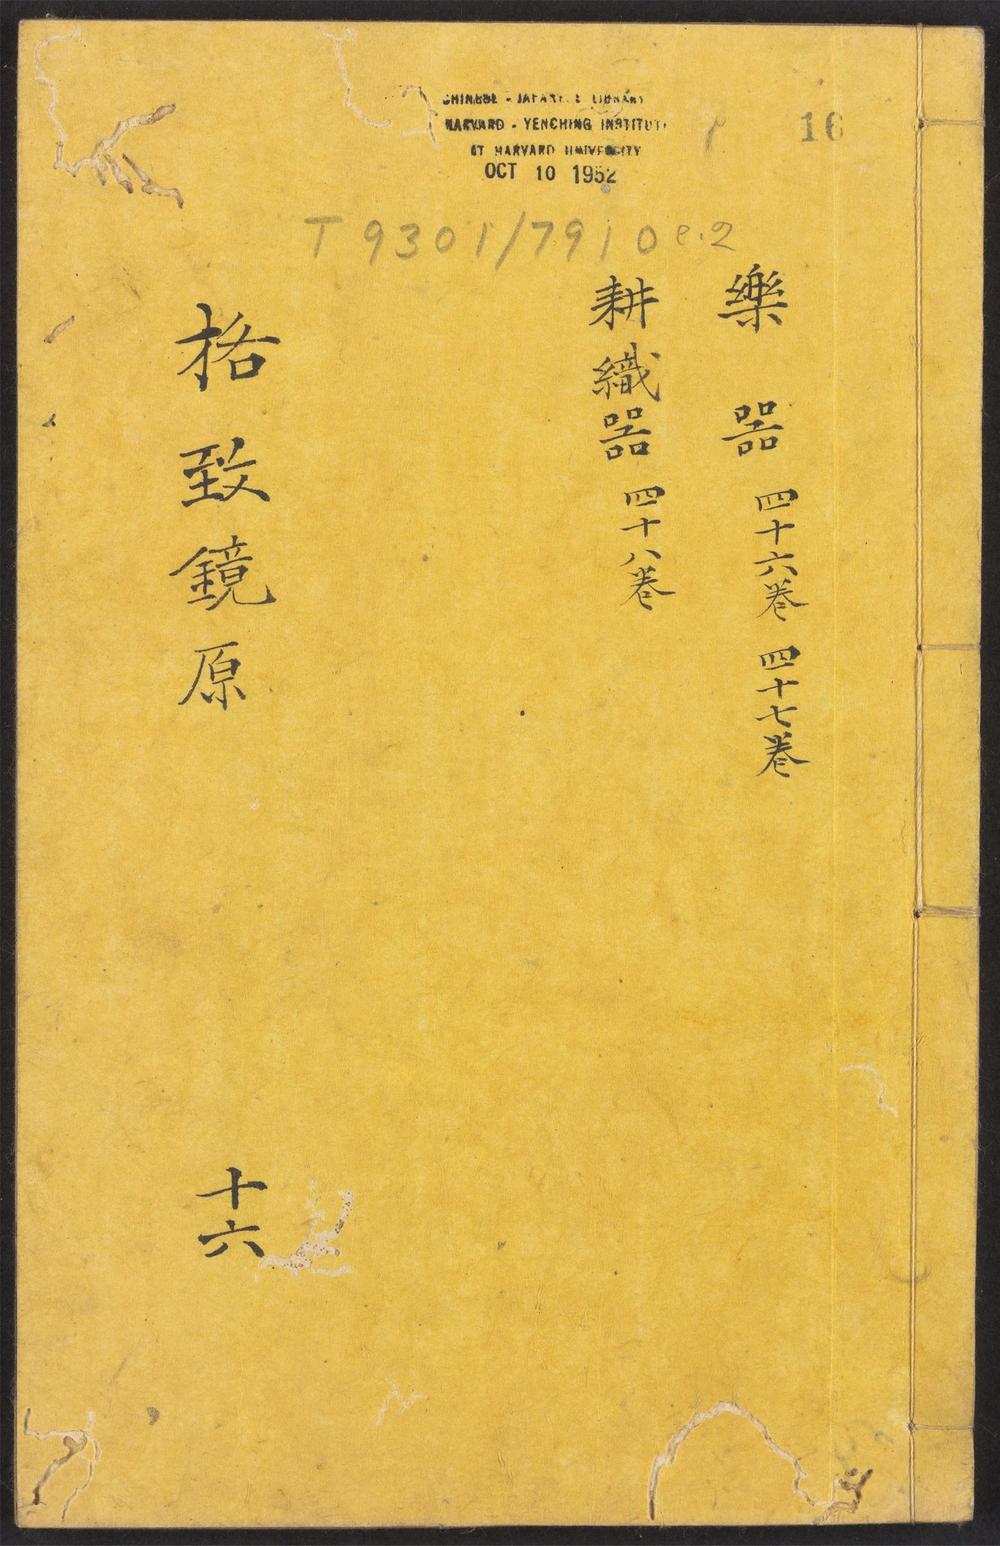 CHINESE - JAPANESE LIBRARY
HARVARD - YENCHING INSTITUTE
AT HARVARD UNIVERSITY
OCT 10 1952
16
T 9301/7910 c.2
樂器 四十六卷 四十七卷
耕織器 四十八卷
格致鏡原
十六